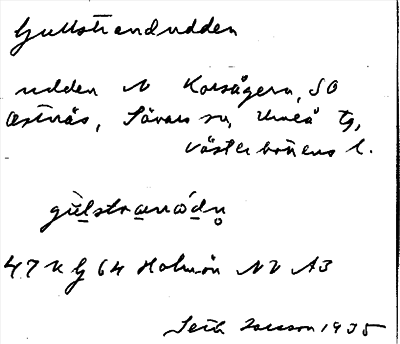 Gullstrandudden
udden N Korsågern, SO
Ostnäs, Sävars sn, Umeå tg,
Västerbottens l.
gulstranωdn
47 u G 64 Holmön NV A3
Seth Larsson 1935